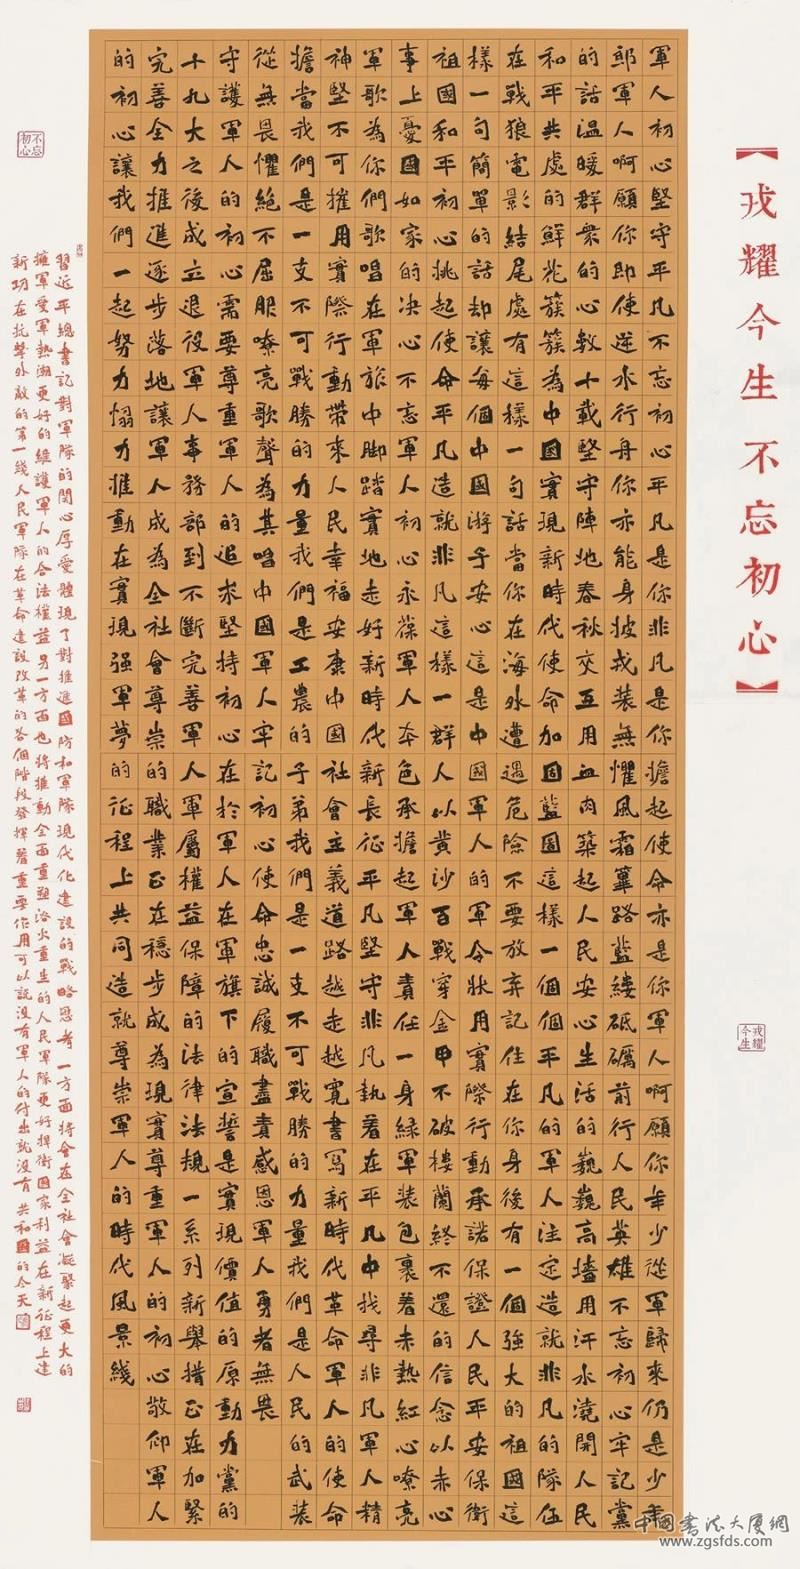 【戎耀今生不忘初心】
戎耀今生
軍人初心堅守平凡不忘初心平凡是你非凡是你擔起使命亦是你軍人啊願你年少從軍歸來仍是少年
郎軍人啊願你即使逆水行舟你亦能身披戎裝無懼風霜篳路藍縷砥礪前行人民英雄不忘初心牢記黨
的話溫暖群衆的心數十載堅守陣地春秋交互用血肉築起人民安心生活的巍巍高墻用汗水澆開人民
和平共處的鮮花簇簇為中國實現新時代使命加固藍圖這樣一個個平凡的軍人注定造就非凡的隊伍
在戰狼電影結尾處有這樣一句話當你在海外遭遇危險不要放弃記住在你身後有一個強大的祖國這
樣一句簡單的話却讓每個中國游子安心這是中國軍人的軍令狀用實際行動承諾保證人民平安保衛
祖國和平初心挑起使命平凡造就非凡這樣一群人以黃沙百戰穿金甲不破樓蘭終不還的信念以赤心
事上憂國如家的决心不忘軍人初心永葆軍人本色承擔起軍人責任一身緑軍裝包裹着赤熱紅心嘹亮
軍歌為你們歌唱在軍旅中脚踏實地走好新時代新長征平凡堅守非凡執着在平凡中找尋非凡軍人精
神堅不可摧用實際行動帶來人民幸福安康中國社會主義道路越走越寬書寫新時代革命軍人的使命
擔當我們是一支不可戰勝的力量我們是工農的子弟我們是一支不可戰勝的力量我們是人民的武裝
從無畏懼絶不屈服嘹亮歌聲為其唱中國軍人牢記初心使命忠誠履職盡責感恩軍人勇者無畏
守護軍人的初心需要尊重軍人的追求堅持初心在於軍人在軍旗下的宣誓是實現價值的原動力黨的
十九大之後成立退役軍人事務部到不斷完善軍人軍屬權益保障的法律法規一系列新舉措正在加緊
完善全力推進逐步落地讓軍人成為全社會尊崇的職業正在穩步成為現實尊重軍人的初心敬仰軍人
的初心讓我們一起努力惱力推動在實現强軍夢的征程上共同造就尊崇軍人的時代風景綫
不忘初心
習近平總書記對軍隊的関心厚愛體現了對推進國防和軍隊現代化建設的戰略思考一方面將會在全社會凝聚起更大的
擁軍愛軍熱潮更好的維護軍人的合法權益另一方面也將推動全面重塑浴火重生的人民軍隊更好捍衛國家利益在新征程上建
新功在抗擊外敵的第一綫人民軍隊在革命建設改革的各個階段發揮着重要作用可以說没有軍人的付出就没有共和國的今天
中國書法大厦網
www.zgsfds.com